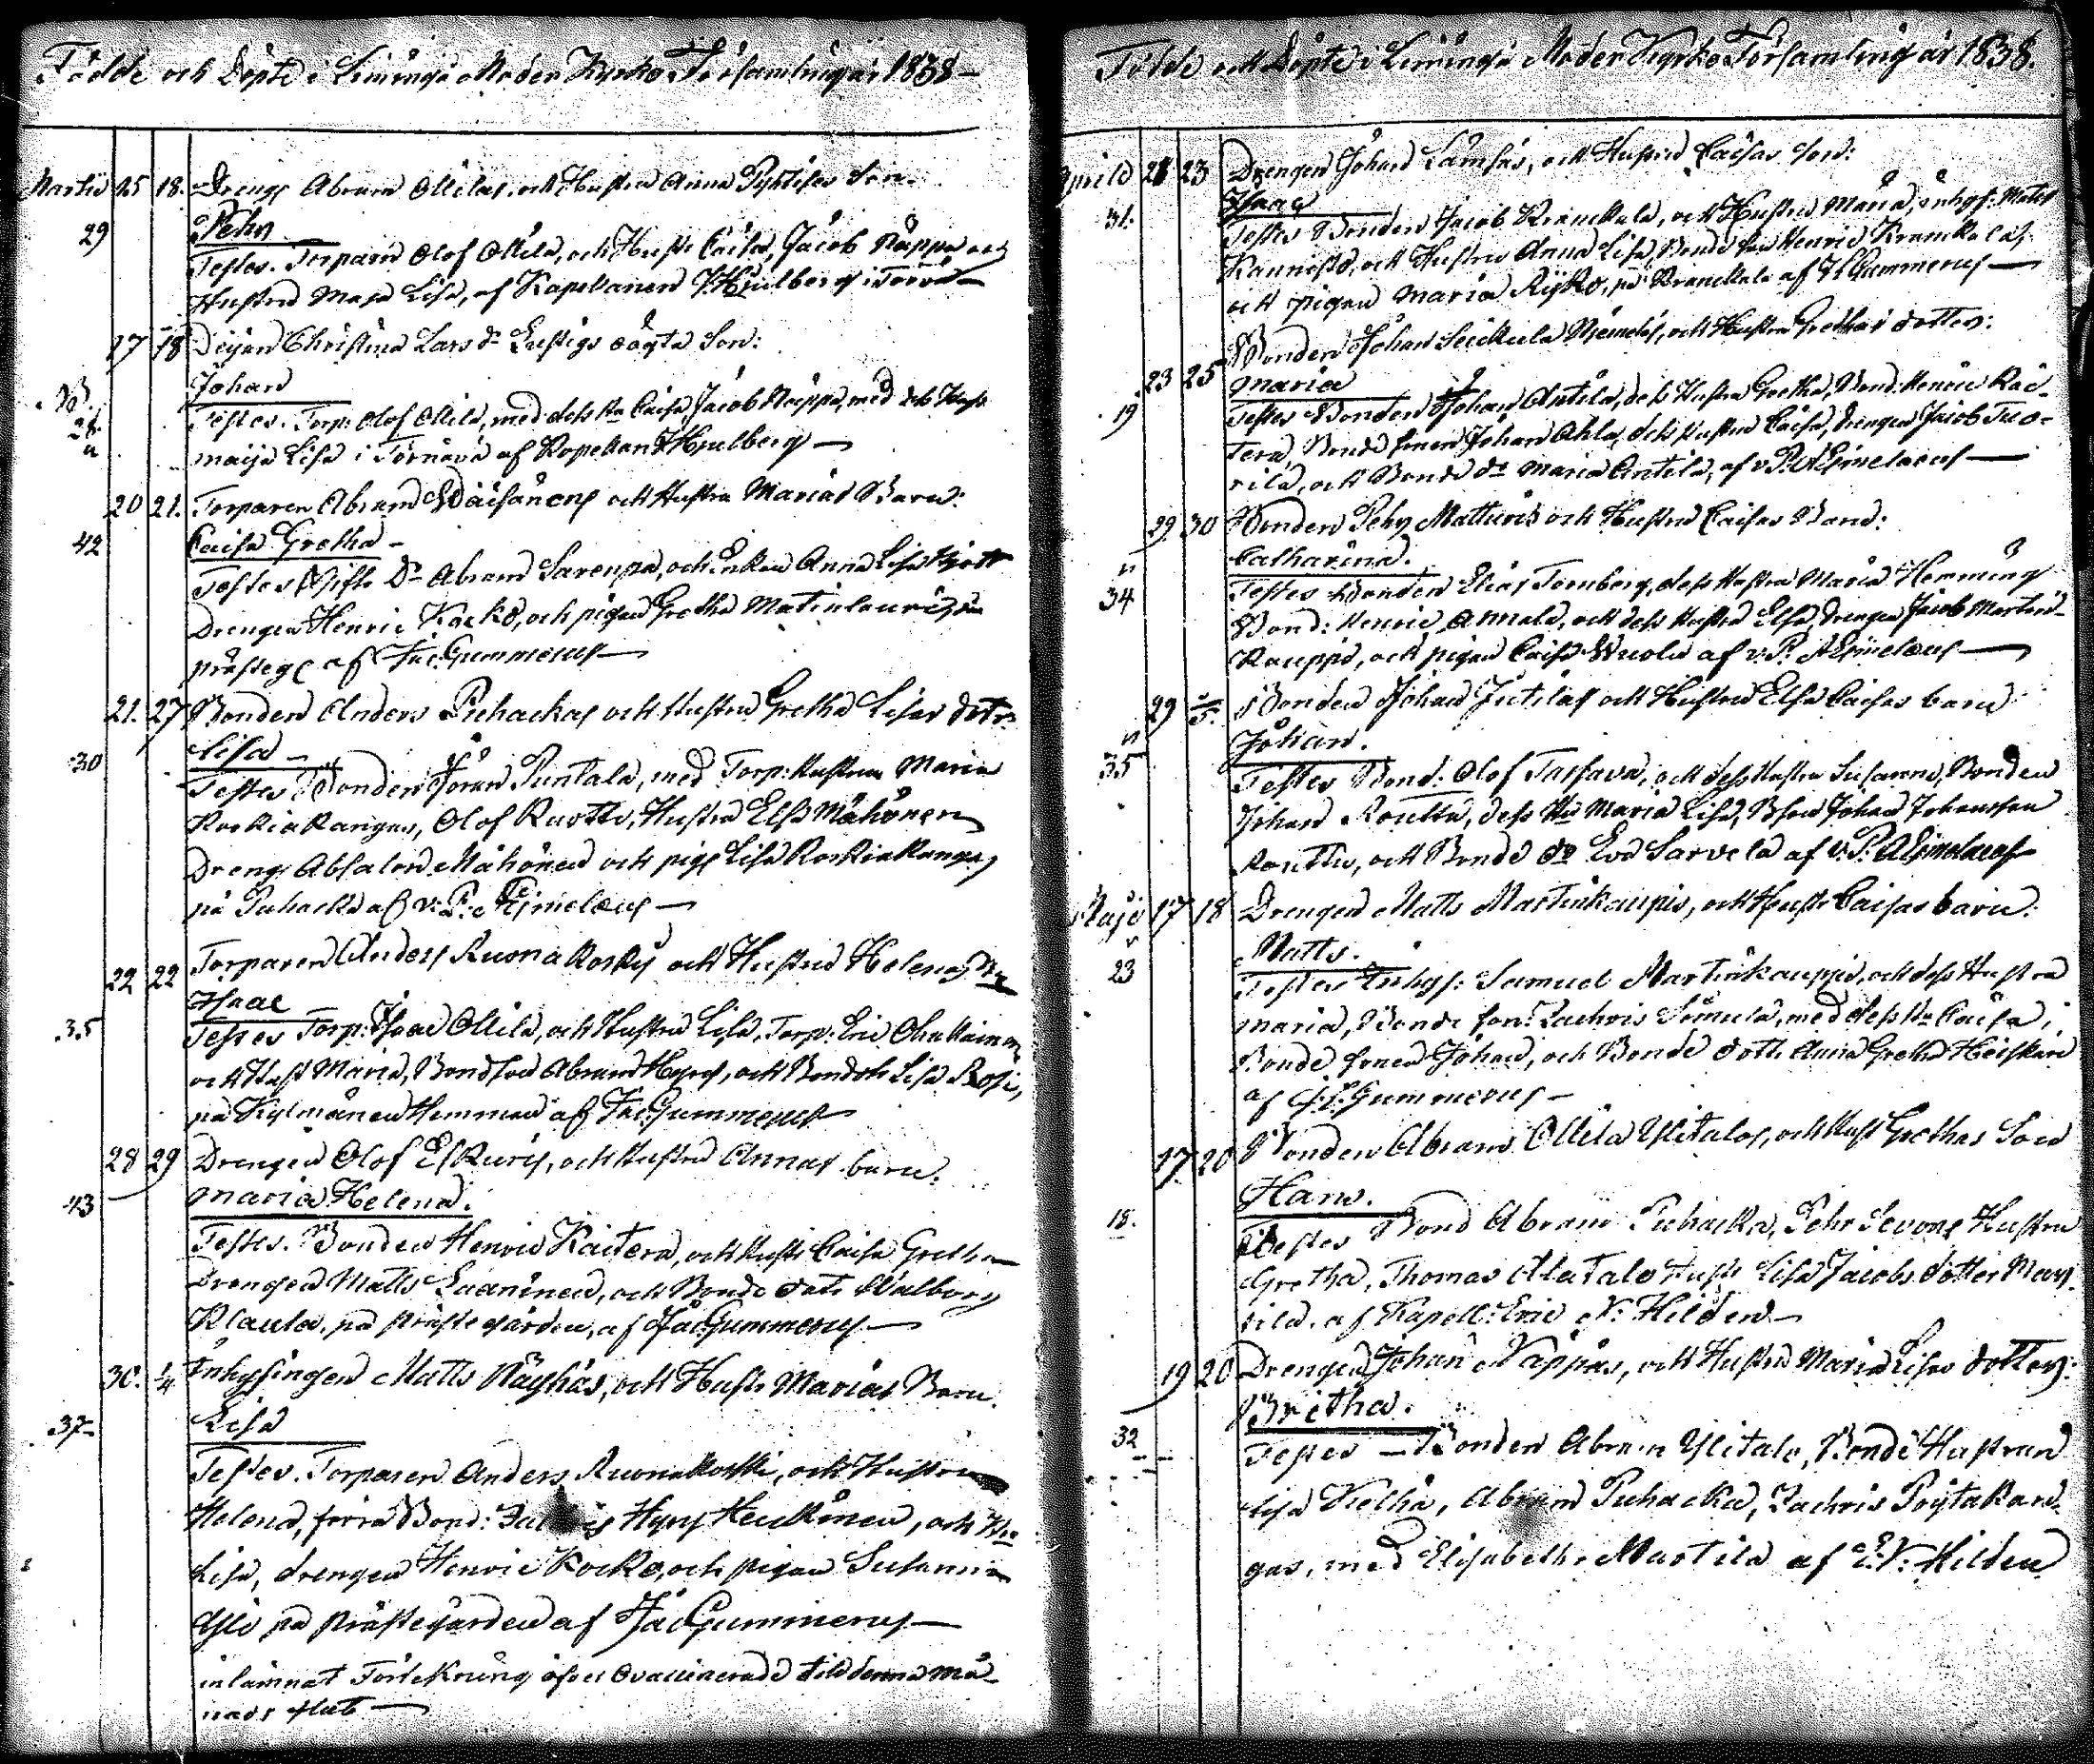 Födde och Döpte i Limingo Moder Kyrko Församling år 1838
Martii 25 18. Drengs Abram Ollilas och Hustru Anna Son.
Pehr
29
Testes. Torparen Olof Ollila, och Hustr Caisa, Jacob Näppä och
Hustru Maja Lisa, af Kapellanen Hjulberg i
17 18 Pigan Christina Lars dr Lustigs oägta Son:
Johan
Testes. Torp: Olof Ollila, med dess Hu Caisa Jacob Näppä, med dess Hust
Maija Lisa i Törnävä af Kapellan Hjulberg
20 21. Torparen Abram Wäisänens och Hustru Marias Barn:
Caisa Gretha
42
Testes Gifte Dr Abram Sarenpä, och Enkan Anna Lisa
Drengen Henric Kocko, och pigan Gretha Matinlauri på
prästeg af Jac: Gummerus
21. 27 Bonden Anders Puhackas och Hustru Gretha Lisas dotr:
Lisa
30
Testes Bonden Göran Puntala, med Torp: Hustrun Maria
Koskiakangas, Olof Ruotto, Hustru Elsa Mähönen
Dreng Absalon Mähönen och pig: Lisa Koskiakangas
på Puhacka af v: P: Ajmelæus
22 22 Torparen Anders Ruonakoski och Hustru Helenas
Isaac
35
Testes Torp: Isaac Ollila, och Hustru Lisa, Torp: Eric
och Hust Maria, Bondson Abram Hyrys, och Bondotr Lisa
på Kylmänen Hemman af Jac: Gummerus
28 29 Drengen Olof Eskuris, och Hustru Annas barn:
Maria Helena.
43
Testes. Bonden Henric Kaitera, och Hustr Caisa Gretha
Drengen Matts Laaninen, och Bonde dotr Walborg
Klaula, på prästegården, af Jac Gummerus
30. 1/4 Inhysingen Matts Näyhäs, och Hustr Marias Barn.
Lisa
37
Testes. Torparen Anders Ruonakoski, och Hustru
Helena, förra Bond: Hyry Heickinen, och Hu
Lisa, drengen Henric Kocko, och pigan Susanna
Yli på Prästegården af Jac Gummerus
inlämnat Förtekning öfver Ovaccinerade till denna må-
nads slut
Födde och Döpte i Limingo Moder Kyrko Församling år 1838.
Aprild 21 23 Drengen Johan Lämsäs, och Hustru Caisas Son:
Isaac
31.
Testes Bonden Jacob Kranckala, och Hustru Maria, inhys: Matts
Kannisto, och Hustru Anna Lisa, Bonde son Henric Kranckala
och pigan Maria Ryko, på Kranckala af Gummerus
23 25 Bonden Johan Seickula Niemeläs, och Hustru Grethas dotter:
Maria
19
Testes Bonden Johan Antila, dess Hustru Gretha, Bond: Henric Kai-
tera, Bonde sonen Johan Ahla, dess Hustru Caisa, drengen Jacob Tuo-
rila, och Bonde dr Maria Antila, af v: P: Ajmelaeus
29 30 Bonden Pehr Matturis och Hustru Caisas Barn:
Catharina.
34
Testes Bonden Elias Tornberg, dess Hustru Maria Hemming
Bond: Henric Annala, och dess Hustru Elsa, drengen Jacob Martin-
Kauppi, och pigan Caisa Wuolu af v: P: Ajmelæus
29 5. Bonden Johan Jutilas och Hustru Elsa Caisas barn
Johan.
35
Testes Bond: Olof Tassava, och dess Hustru Susanna, Bonden
Johan Routtu, dess Hu Maria Lisa, Bson Johan Johansson
Routtu, och Bonde dr Eva Sarvela af v: P: Ajmelaeus
Maji 17 18 Drengen Matts Martinkaupis, och Hustr Caisas barn:
Matts.
23
Testes Inhys: Samuel Martinkauppi, och dess Hustru
Maria, Bonde son: Zachris Simula, med dess Hu Caisa,
Bonde sonen Johan, och Bonde dotr Anna Gretha Heiskari
af Gummerus
17 20 Bonden Abram Ollila Ylitalos, och Hust Grethas Son
Hans.
18.
Testes Bond Abram Puhacka, Pehr Sevons Hustru
Gretha, Thomas Alatalo Hustr Lisa Jacobs dotter Mar-
tila, af Kapell: Eric N: Hildén
19 20 Drengen Johan Näppäs, och Hustru Maria Lisas dotter:
Britha.
32
Testes Bonden Abram Ylitalo, Bonde Hustrun
Lisa Kielhä, Abram Puhacka, Zachris Pöytäkan-
gas, med Elisabeth Martila af E: N: Hildén